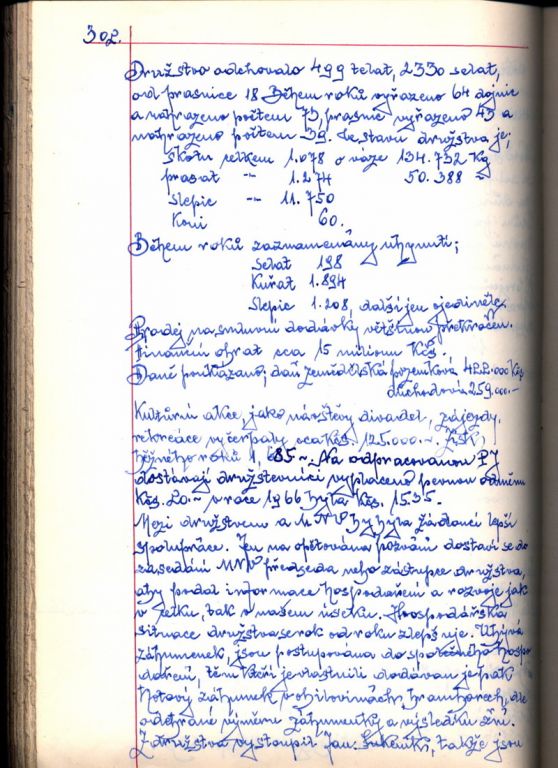 302.
Družstvo odchovalo 499 telat, 2330 selat,
od prasnice 18 Během roků vyřazeno 64 dojnic
a nahrazeno počtem 73, prasnic vyřazeno 43 a
nahrazeno počtem 39. Ve stavu družstva je;
Skotu celkem 1.078 o váze 134.732 Kg
prasat -"- 1.274 50.388 "
slepic -"- 11.750
Koní 60.
Během roků zaznamenány úhynutí;
Selat 198
Kuřat 1.894
Slepic 1.208, další jen ojediněle.
Prodej na smluvní dodávky většinou překračen.
Finanční obrat cca 15 milionu Kčs.
Daně poukázano; daň zemědělská pozemková 422.000 Kčs
důchodová 259.000.-
Kulturní akce, jako návštěvy divadel, zájezdy,
rekreace vyčerpaly cca Kčs. 125.000.-. Zisk
běžného roků 1, 85~. Na odpracovanou PJ
dostávají družstevníci vyplaceno pevnou odměnu
Kčs. 20.~ v roce 1966 byla Kčs. 15.35.
Mezi družstvem a MNV by byla žádoucí lepší
spolupráce. Jen na opětovano pozvání dostaví se do
zasedání MNV předseda nebo zástupce družstva,
aby podal informace hospodaření a rozvoje jak
v celku, tak v našem úseku. Hospodářská
situace družstva se rok od roku zlepšuje. Ubývá
záhumenek, jsou postupována do společného hospo
daření, těm kteří je vlastnili dodávan je pak
hotový záhumek v obilovinách, bramborech, dle
odebrané výměru záhumenků a výsledku žní.
Z družstva vystoupil Jan , takže jsou